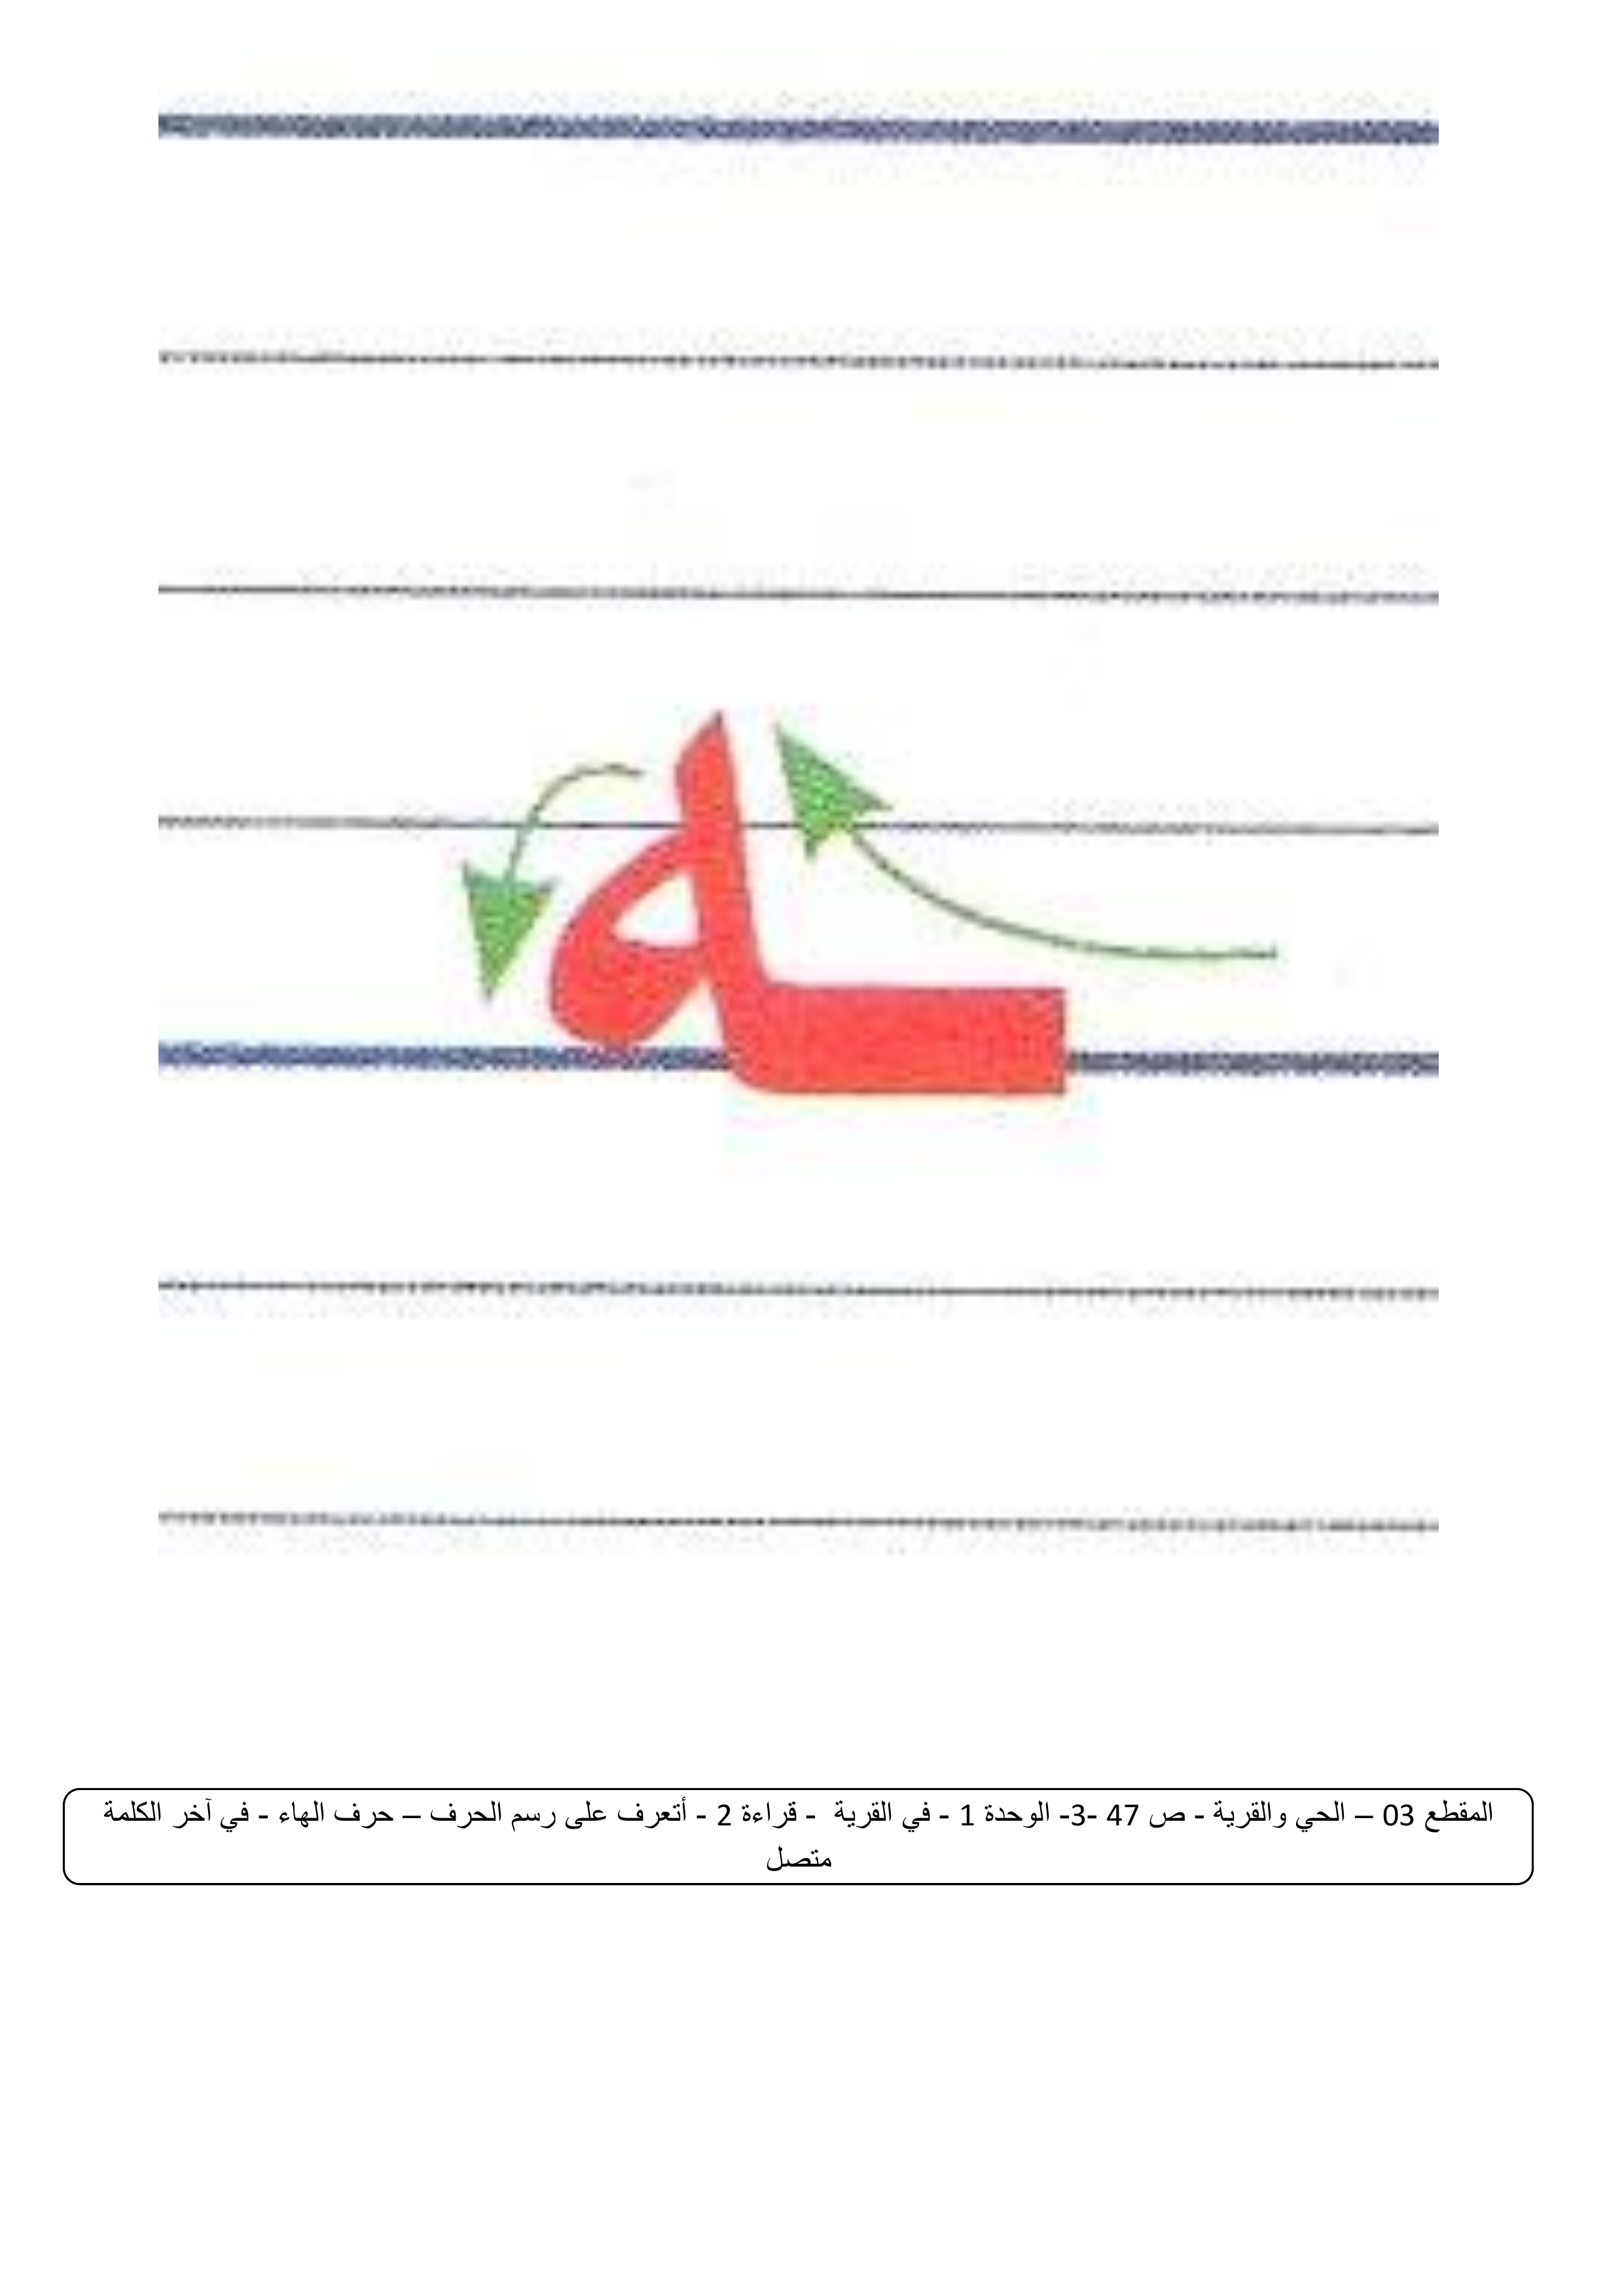 ـه
المقطع 03 – الحي والقرية - ص 47 -3- الوحدة 1 - في القرية - قراءة 2 - أتعرف على رسم الحرف – حرف الهاء - في آخر الكلمة
متصل